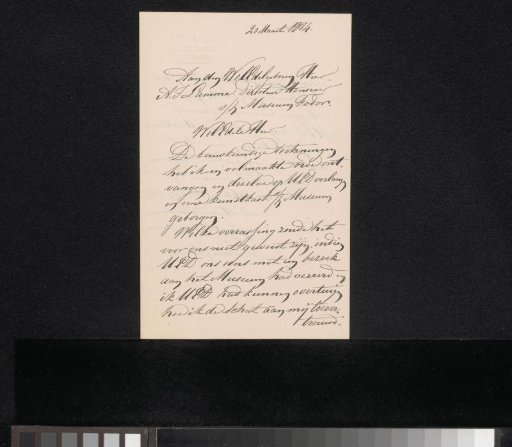 20 Maart 1864.
Aan den WelEdelgeboren Heer
A. J. Lamme Directeur
v/h Museum Fodor
WelEdele Heer
De bouwkundige teekeningen
heb ik in volmaakte orde ont-
vangen en dezelve op UEd verlangen
in eene kunstkast v/h Museum
geborgen.
Welke verrassing zoude het
voor ons niet geweest zijn, indien
UEd ons eens met een bezoek
aan het Museum had vereerd en
ik UEd had kunnen overtuigen
hoe ik de schat aan mij toever-
trouwd.